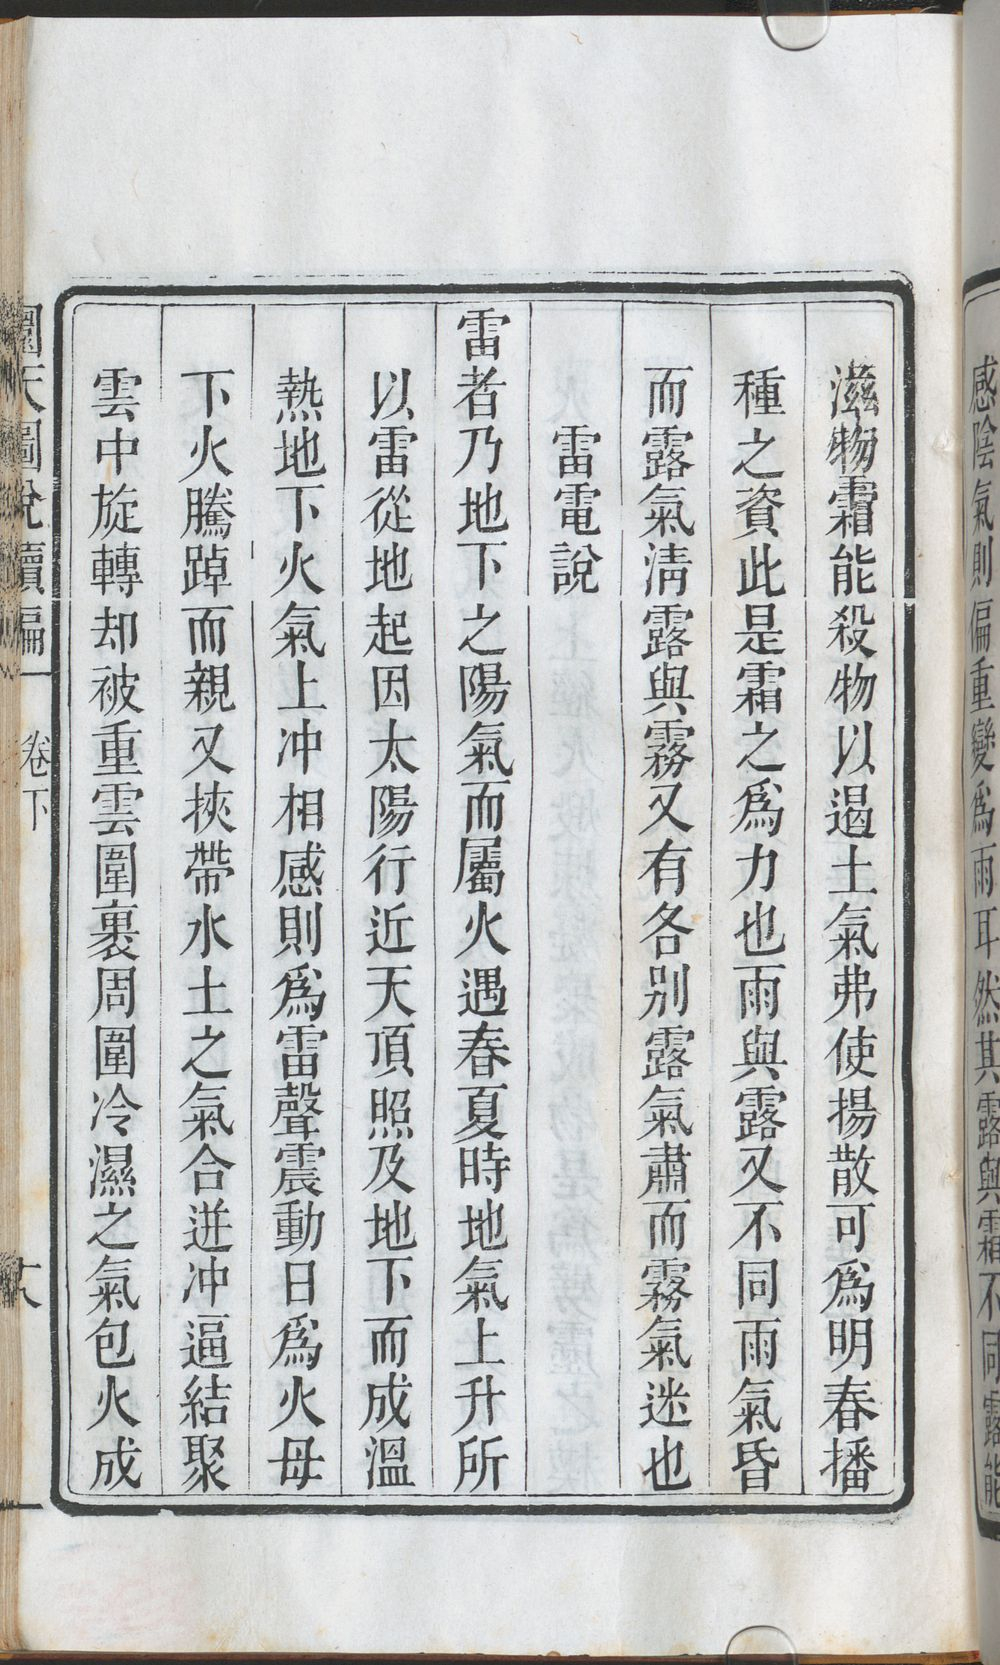 感陰氣則偏重變爲雨耳然其露與霜不同露能
滋物霜能殺物以遏土氣弗使揚散可爲明春播
種之資此是霜之爲力也雨與露又不同雨氣昏
而露氣淸露與霧又有各别露氣肅而霧氣迷也
雷電說
雷者乃地下之陽氣而屬火遇春夏時地氣上升所
以雷從地起因太陽行近天頂照及地下而成溫
熱地下火氣上冲相感則爲雷聲震動日爲火母
下火騰踔而親又挾帶水土之氣合迸冲逼結聚
雲中旋轉却被重雲圍裏周圍冷濕之氣包火成
圜天圖說續編 卷下